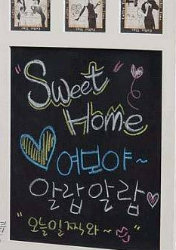 "Sweet
Home"
여보야~
알랍알랍
"오늘일찍와~"